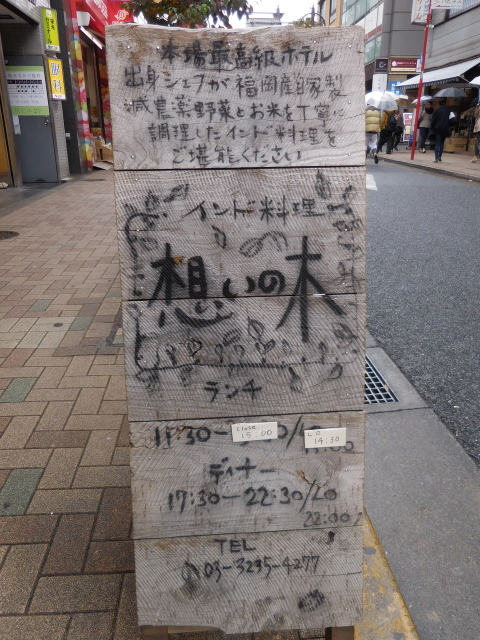 本場最高級ホテル
出身シェフが福岡産自家製
減農薬野菜とお米を丁寧に
調理したインド料理を
ご堪能ください
インド料理
想いの木
ランチ
11:30-
close
15:00
L.O
14:30
ディナー
17:30-22:30/LO
22:00
TEL
03-3235-4277